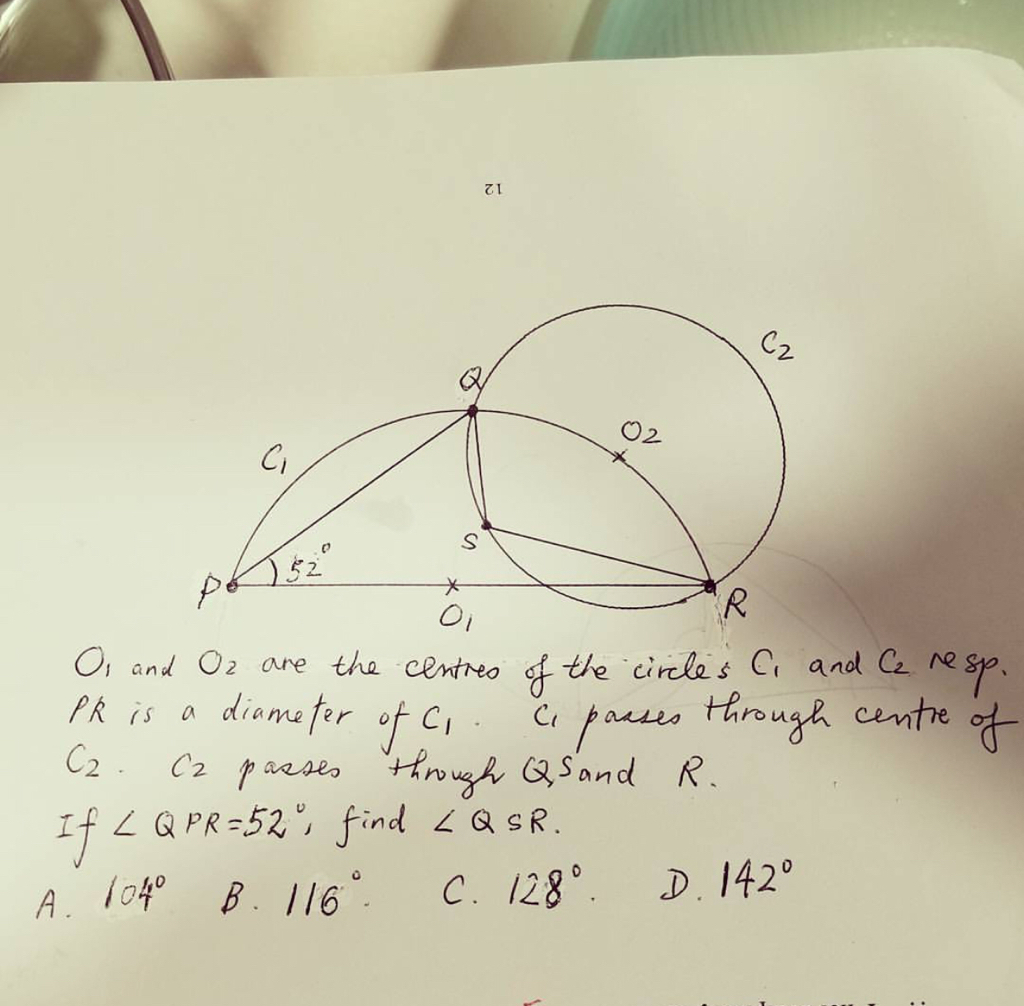 12
C2
Q
O2
C1
S
52°
P
O1
R
O1 and O2 are the centres of the circles C1 and C2 resp.
PR is a diameter of C1. C1 passes through centre of
C2. C2 passes through Q, S and R.
If ∠QPR=52°, find ∠QSR.
A. 104° B. 116°. C. 128°. D. 142°